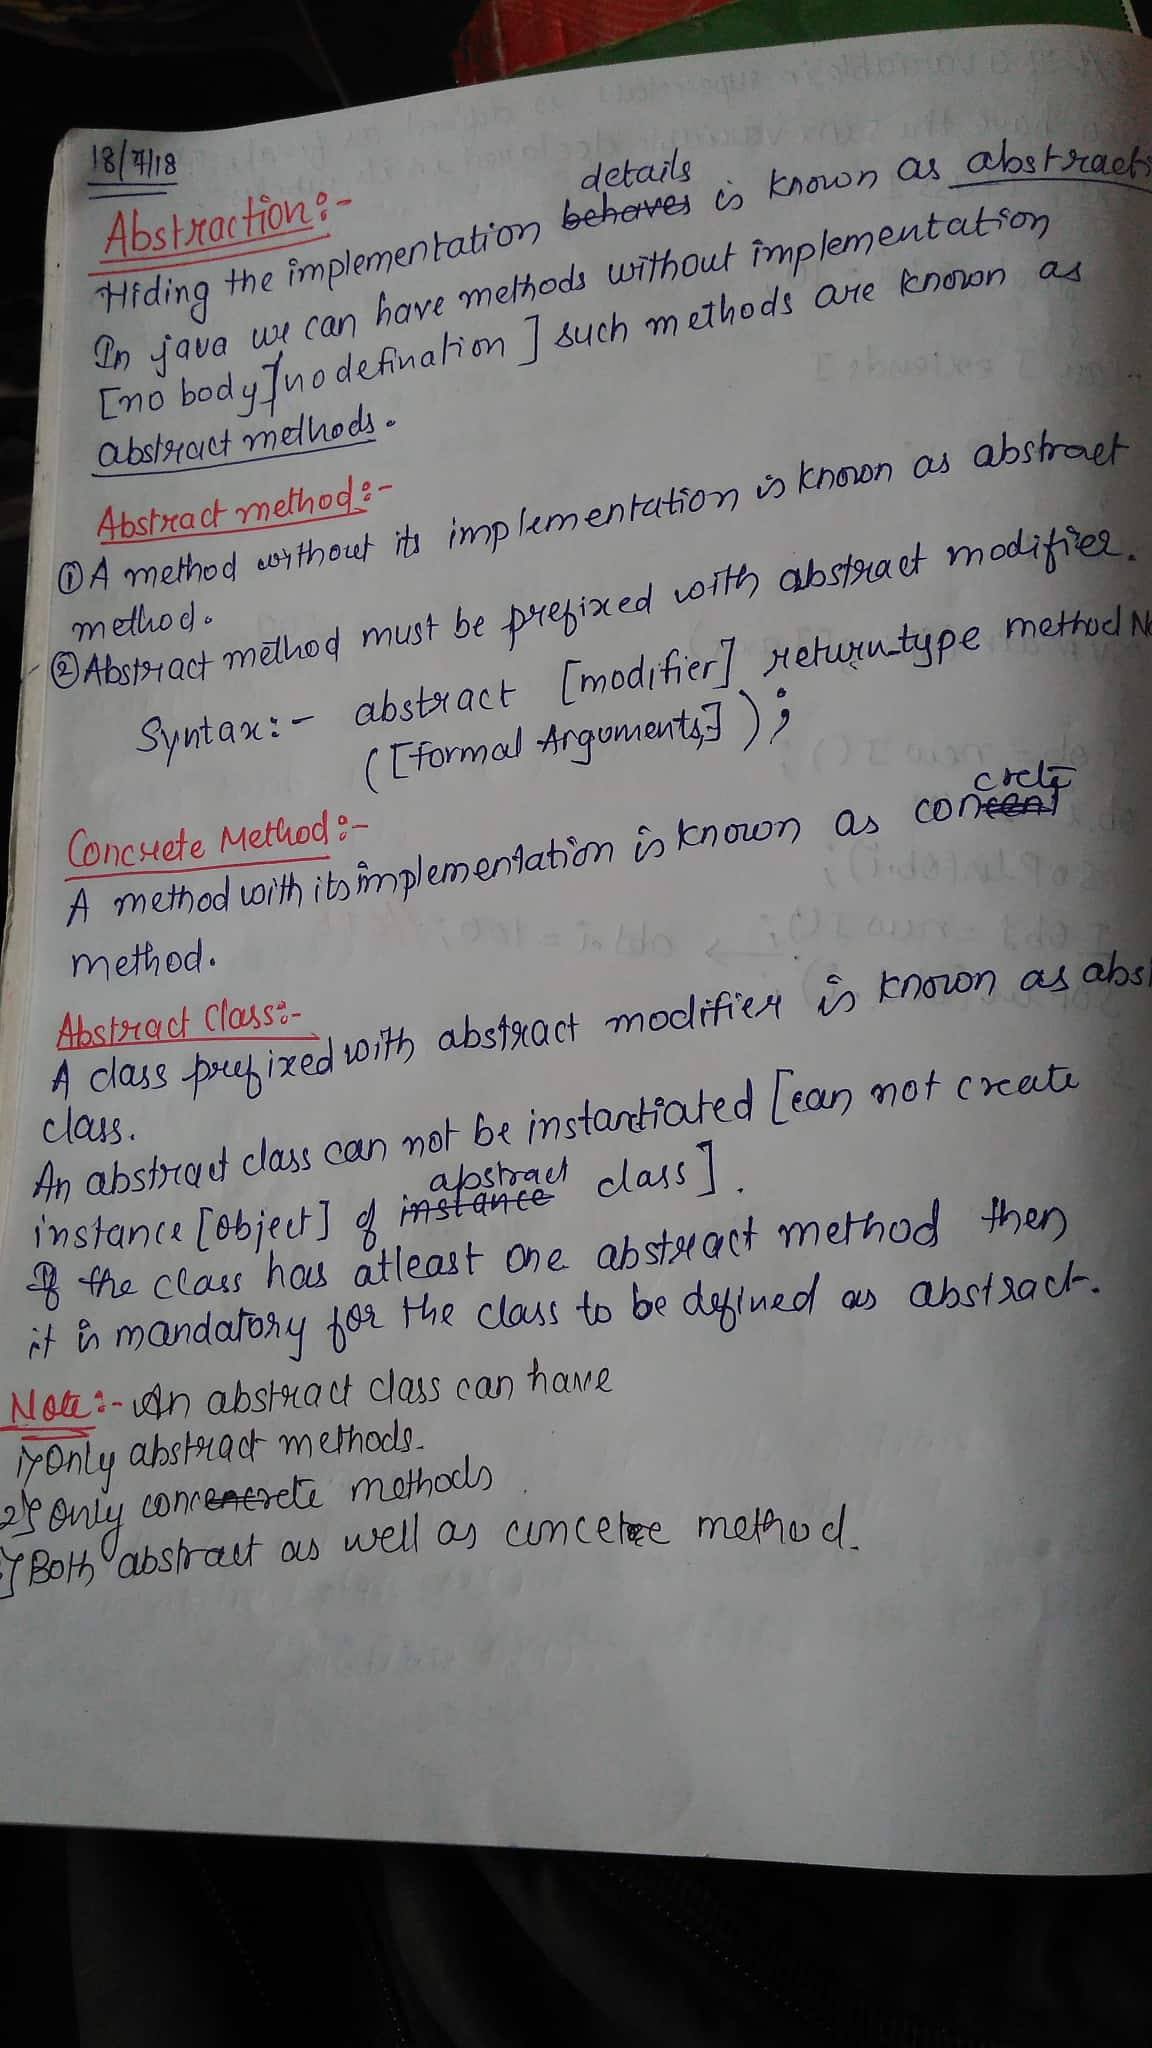 18/7/18
Abstraction:-
Hiding the implementation behaves details is known as abstract
In java we can have methods without implementation
[no body] no defination ] such methods are known as
abstract methods.
Abstract method:-
① A method without its implementation is known as abstract
method.
② Abstract method must be prefixed with abstract modifier.
Syntax:- abstract [modifier] return_type method N
([formal Arguments,] );
Concrete Method:-
A method with its implementation is known as concrete
method.
Abstract Class:-
A class prefixed with abstract modifier is known as abs
class.
An abstract class can not be instantiated [can not create
instance [object] of instance abstract class].
If the class has atleast one abstract method then
it is mandatory for the class to be defined as abstract.
Note:- An abstract class can have
1) Only abstract methods.
2) Only concrete methods
) Both abstract as well as method.